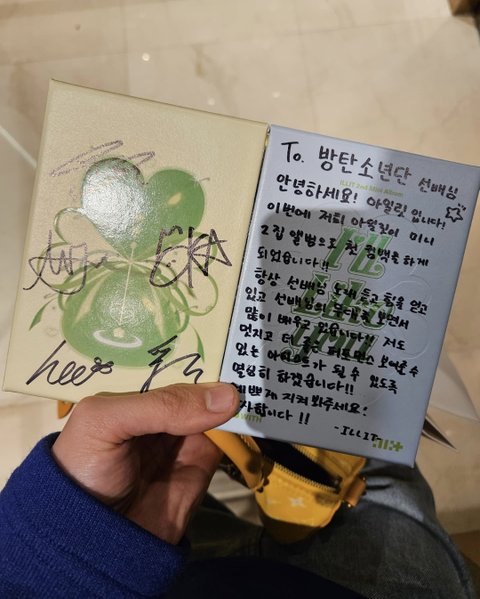 To. 방탄소년단 선배님
ILLIT 2nd Mini Album
안녕하세요! 아일릿입니다!
이번에 저희 아일릿이 미니
2집 앨범으로 첫 컴백을 하게
되었습니다!!
항상 선배님 노래 듣고 힘을 얻고
있고 선배님의 무대를 보면서
많이 배우고 있습니다!! 저도
멋지고 더 좋은 퍼포먼스 보여줄 수
있는 아티스트가 될 수 있도록
열심히 하겠습니다!!
예쁘게 지켜 봐주세요!
감사합니다!!
-ILLIT
I'LL
LIKE
YOU